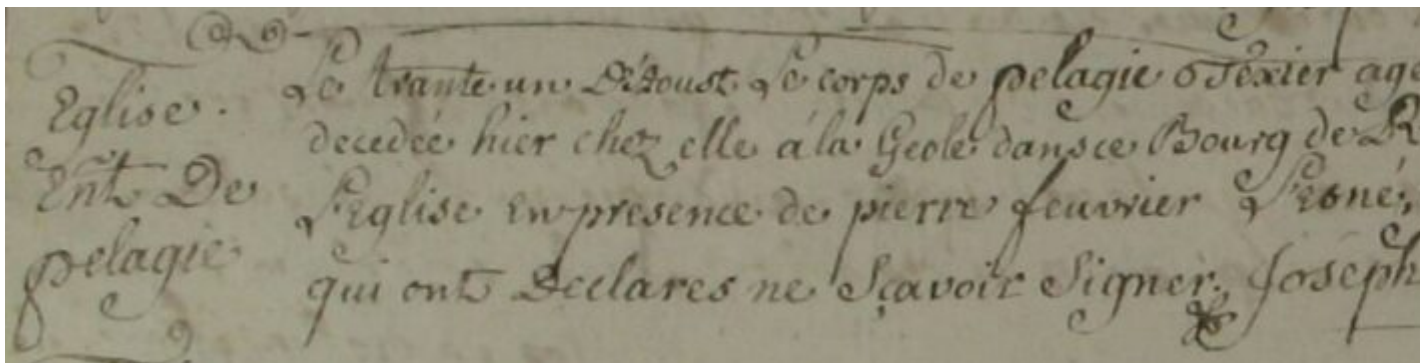 Eglise.
Ent De
pelagie
Le trante un D'Aoust Le corps de pelagie Texier agé
decedée hier chez elle à la Geole dans ce Bourg de R
L'Eglise en presence de pierre feuvrier L'esné,
qui ont Declares ne Sçavoir Signer. Joseph